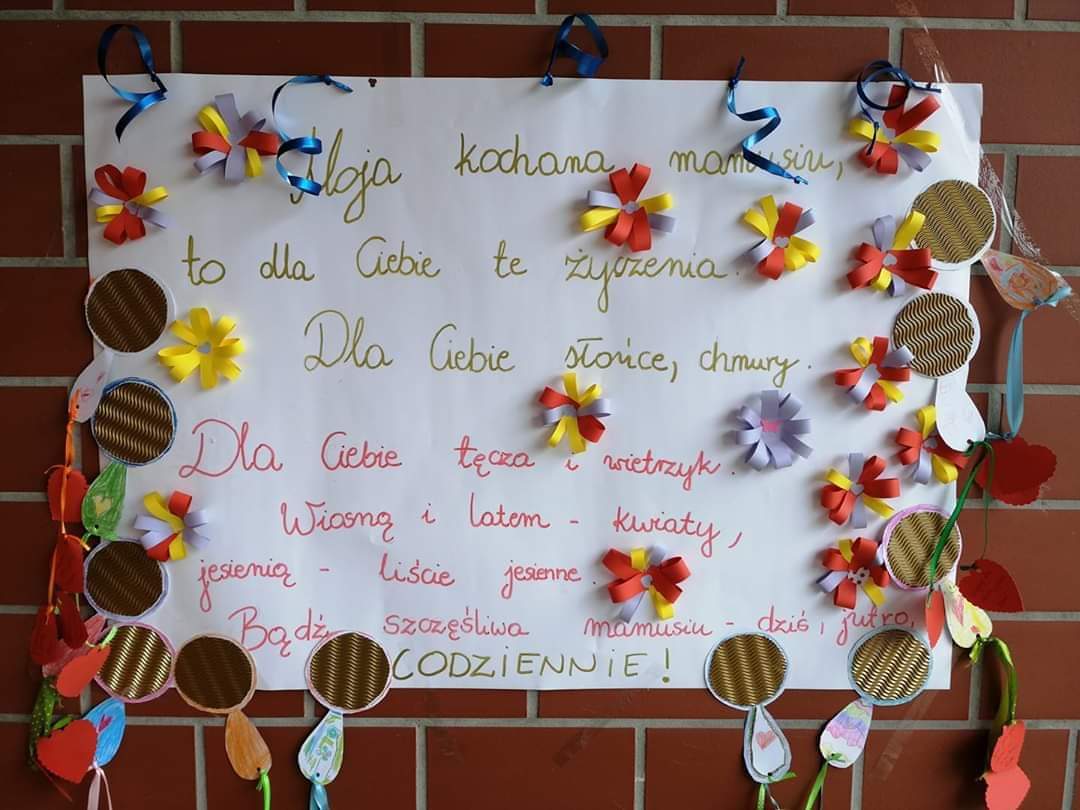 Moja kochana mamusiu,
to dla Ciebie te życzenia.
Dla Ciebie słońce, chmury.
Dla Ciebie tęcza i wietrzyk.
Wiosną i latem - kwiaty,
jesienią - liście jesienne.
Bądź szczęśliwa mamusiu - dziś, jutro,
CODZIENNIE!